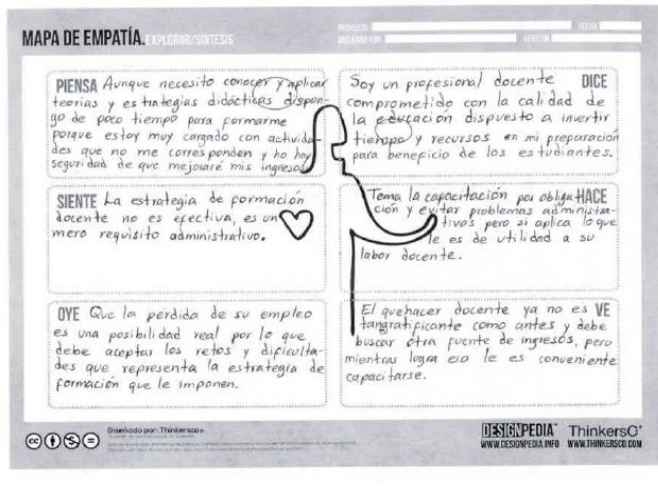 MAPA DE EMPATÍA. EXPLORAR/SÍNTESIS
PIENSA Aunque necesito conocer y aplicar
teorías y estrategias didácticas dispon-
go de poco tiempo para formarme
porque estoy muy cargado con activida-
des que no me corresponden y no hay
seguridad de que mejoraré mis ingresos
Soy un profesional docente DICE
comprometido con la calidad de
la educación dispuesto a invertir
tiempo y recursos en mi preparación
para beneficio de los estudiantes.
SIENTE La estrategia de formación
docente no es efectiva, es un
mero requisito administrativo.
Toma la capacitación por obliga- HACE
ción y evitar problemas administra-
tivos pero si aplica lo que
le es de utilidad a su
labor docente.
OYE Que la pérdida de su empleo
es una posibilidad real por lo que
debe aceptar los retos y dificulta-
des que representa la estrategia de
formación que le imponen.
El quehacer docente ya no es VE
tan gratificante como antes y debe
buscar otra fuente de ingresos, pero
mientras logra eso le es conveniente
capacitarse.
cc
Diseñado por: Thinkersco
DESIGNPEDIA
WWW.DESIGNPEDIA.INFO
ThinkersCo
WWW.THINKERSCO.COM